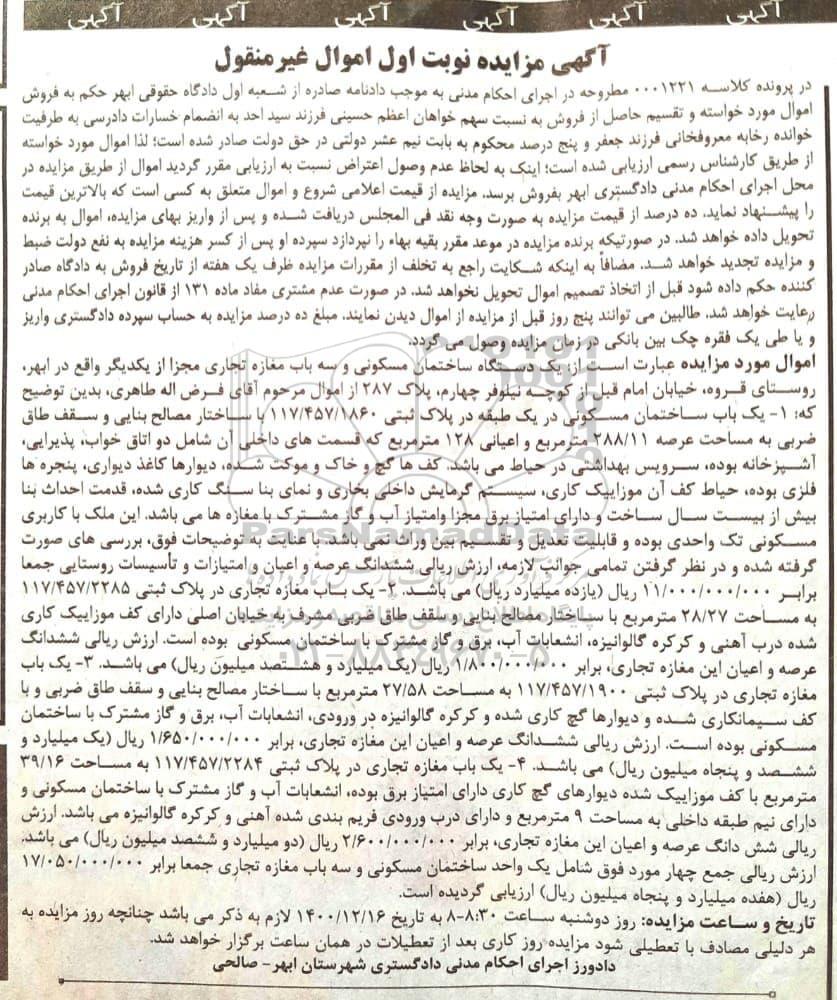 آگهی آگهی آگهی آگهی آگهی
آگهی مزایده نوبت اول اموال غیرمنقول
در پرونده کلاسه ۰۰۰۱۲۲۱ مطروحه در اجرای احکام مدنی به موجب دادنامه صادره از شعبه اول دادگاه حقوقی ابهر حکم به فروش
اموال مورد خواسته و تقسیم حاصل از فروش به نسبت سهم خواهان اعظم حسینی فرزند سید احد به انضمام خسارات دادرسی به طرفیت
خوانده رخابه معروفخانی فرزند جعفر و پنج درصد محکوم به بابت نیم عشر دولتی در حق دولت صادر شده است؛ لذا اموال مورد خواسته
از طریق کارشناس رسمی ارزیابی شده است؛ اینک به لحاظ عدم وصول اعتراض نسبت به ارزیابی مقرر گردید اموال از طریق مزایده در
محل اجرای احکام مدنی دادگستری ابهر بفروش برسد. مزایده از قیمت اعلامی شروع و اموال متعلق به کسی است که بالاترین قیمت
را پیشنهاد نماید. ده درصد از قیمت مزایده به صورت وجه نقد فی المجلس دریافت شده و پس از واریز بهای مزایده، اموال به برنده
تحویل داده خواهد شد. در صورتیکه برنده مزایده در موعد مقرر بقیه بهاء را نپردازد سپرده او پس از کسر هزینه مزایده به نفع دولت ضبط
و مزایده تجدید خواهد شد. مضافاً به اینکه شکایت راجع به تخلف از مقررات مزایده ظرف یک هفته از تاریخ فروش به دادگاه صادر
کننده حکم داده شود قبل از اتخاذ تصمیم اموال تحویل نخواهد شد. در صورت عدم مشتری مفاد ماده ۱۳۱ از قانون اجرای احکام مدنی
رعایت خواهد شد. طالبین می توانند پنج روز قبل از مزایده از اموال دیدن نمایند. مبلغ ده درصد مزایده به حساب سپرده دادگستری واریز
و یا طی یک فقره چک بین بانکی در زمان مزایده وصول می گردد.
اموال مورد مزایده عبارت است از یک دستگاه ساختمان مسکونی و سه باب مغازه تجاری مجزا از یکدیگر واقع در ابهر،
روستای قروه، خیابان امام قبل از کوچه نیلوفر چهارم، پلاک ۲۸۷ از اموال مرحوم آقای فرض اله طاهری، بدین توضیح
که: ۱- یک باب ساختمان مسکونی در یک طبقه در پلاک ثبتی ۱۱۷/۴۵۷/۱۸۶۰ با ساختار مصالح بنایی و سقف طاق
ضربی به مساحت عرصه ۲۸۸/۱۱ مترمربع و اعیانی ۱۲۸ مترمربع که قسمت های داخلی آن شامل دو اتاق خواب، پذیرایی،
آشپزخانه بوده، سرویس بهداشتی در حیاط می باشد. کف ها گچ و خاک و موکت شده، دیوارها کاغذ دیواری، پنجره ها
فلزی بوده، حیاط کف آن موزاییک کاری، سیستم گرمایش داخلی بخاری و نمای بنا سنگ کاری شده، قدمت احداث بنا
بیش از بیست سال ساخت و دارای امتیاز برق مجزا وامتیاز آب و گاز مشترک با مغازه ها می باشد. این ملک با کاربری
مسکونی تک واحدی بوده و قابلیت تعدیل و تقسیم بین وراث نمی باشد. با عنایت به توضیحات فوق، بررسی های صورت
گرفته شده و در نظر گرفتن تمامی جوانب لازمه، ارزش ریالی ششدانگ عرصه و اعیان و امتیازات و تأسیسات روستایی جمعا
برابر ۱۱/۰۰۰/۰۰۰/۰۰۰ ریال (یازده میلیارد ریال) می باشد. ۲- یک باب مغازه تجاری در پلاک ثبتی ۱۱۷/۴۵۷/۲۲۸۵
به مساحت ۲۸/۲۷ مترمربع با ساختار مصالح بنایی و سقف طاق ضربی مشرف به خیابان اصلی دارای کف موزاییک کاری
شده درب آهنی و کرکره گالوانیزه، انشعابات آب، برق و گاز مشترک با ساختمان مسکونی بوده است. ارزش ریالی ششدانگ
عرصه و اعیان این مغازه تجاری، برابر ۱/۸۰۰/۰۰۰/۰۰۰ ریال (یک میلیارد و هشتصد میلیون ریال) می باشد. ۳- یک باب
مغازه تجاری در پلاک ثبتی ۱۱۷/۴۵۷/۱۹۰۰ به مساحت ۲۷/۵۸ مترمربع با ساختار مصالح بنایی و سقف طاق ضربی و با
کف سیمانکاری شده و دیوارها گچ کاری شده و کرکره گالوانیزه در ورودی، انشعابات آب، برق و گاز مشترک با ساختمان
مسکونی بوده است. ارزش ریالی ششدانگ عرصه و اعیان این مغازه تجاری، برابر ۱/۶۵۰/۰۰۰/۰۰۰ ریال (یک میلیارد و
ششصد و پنجاه میلیون ریال) می باشد. ۴- یک باب مغازه تجاری در پلاک ثبتی ۱۱۷/۴۵۷/۲۲۸۴ به مساحت ۳۹/۱۶
مترمربع با کف موزاییک شده دیوارهای گچ کاری دارای امتیاز برق بوده، انشعابات آب و گاز مشترک با ساختمان مسکونی و
دارای نیم طبقه داخلی به مساحت ۹ مترمربع و دارای درب ورودی فریم بندی شده آهنی و کرکره گالوانیزه می باشد. ارزش
ریالی شش دانگ عرصه و اعیان این مغازه تجاری، برابر ۲/۶۰۰/۰۰۰/۰۰۰ ریال (دو میلیارد و ششصد میلیون ریال) می باشد.
ارزش ریالی جمع چهار مورد فوق شامل یک واحد ساختمان مسکونی و سه باب مغازه تجاری جمعا برابر ۱۷/۰۵۰/۰۰۰/۰۰۰
ریال (هفده میلیارد و پنجاه میلیون ریال) ارزیابی گردیده است.
تاریخ و ساعت مزایده: روز دوشنبه ساعت ۸:۳۰-۸ به تاریخ ۱۴۰۰/۱۲/۱۶ لازم به ذکر می باشد چنانچه روز مزایده به
هر دلیلی مصادف با تعطیلی شود مزایده روز کاری بعد از تعطیلات در همان ساعت برگزار خواهد شد.
دادورز اجرای احکام مدنی دادگستری شهرستان ابهر- صالحی
ParsNamadData
۰۲۱-۸۸۳۴۹۶۷۰-۵